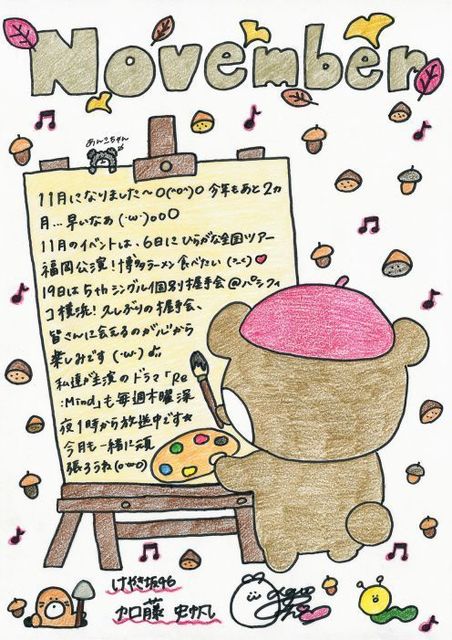 November
あんこちゃん
11月になりました〜O(^o^)O 今年もあと2ヵ
月…早いなあ(·ω·)ooO
11月のイベントは、6日にひらがな全国ツアー
福岡公演!博多ラーメン食べたい
19日は5thシングル個別握手会@パシフィ
コ横浜!久しぶりの握手会、
皆さんに会えるのが心から
楽しみです(·ω·)♪
私達が主演のドラマ「Re
:Mind」も毎週木曜深
夜1時から放送中です☆
今月も一緒に頑
張ろうね(oωo)
けやき坂46
加藤 史帆